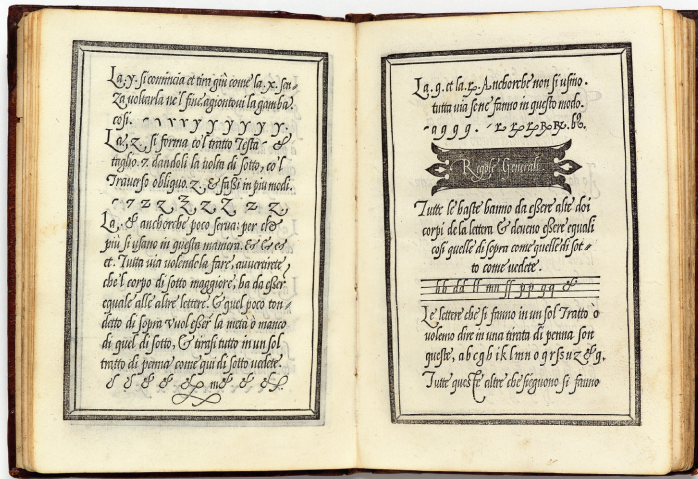 La .y. si comincia et tira giù come la .x. sen-
za voltarla ne'l fine agiontovi la gamba
cosi. y y y y y y y.
La, z, si forma co'l tratto Testa - &
taglio . 7 dandoli la volta di sotto, co'l
Traverso obliquo. z, & fassi in più modi.
- 7 z z z, z, z, z z,
La, & anchorche poco serva: per che
più si usano in questa maniera. & & e
et. Tutta via volendola fare, avvertirete
che'l corpo di sotto maggiore, ha da esser
equale alle altre lettere. & quel poco ton-
detto di sopra vuol esser la metà o manco
di quel di sotto, & tirasi tutto in un sol
tratto di penna come qui di sotto vedete.
& & &
La. q. et la. R. Anchorche non si usino.
tutta via se ne fanno in questo modo.
- a q q q. - R R R R R.
Rigole Generali
Tutte le haste hanno da essere alte doi
corpi de la lettera & deveno essere equali
cosi quelle di sopra come quelle di sot-
to come vedete.
bb dd ll mn ſſ pp qq &
Le lettere che si fanno in un sol Tratto ò
volemo dire in una tirata di penna son
queste, a b c g h i k l m n o q r ſ s u z & 9.
Tutte queste altre che sieguono si fanno